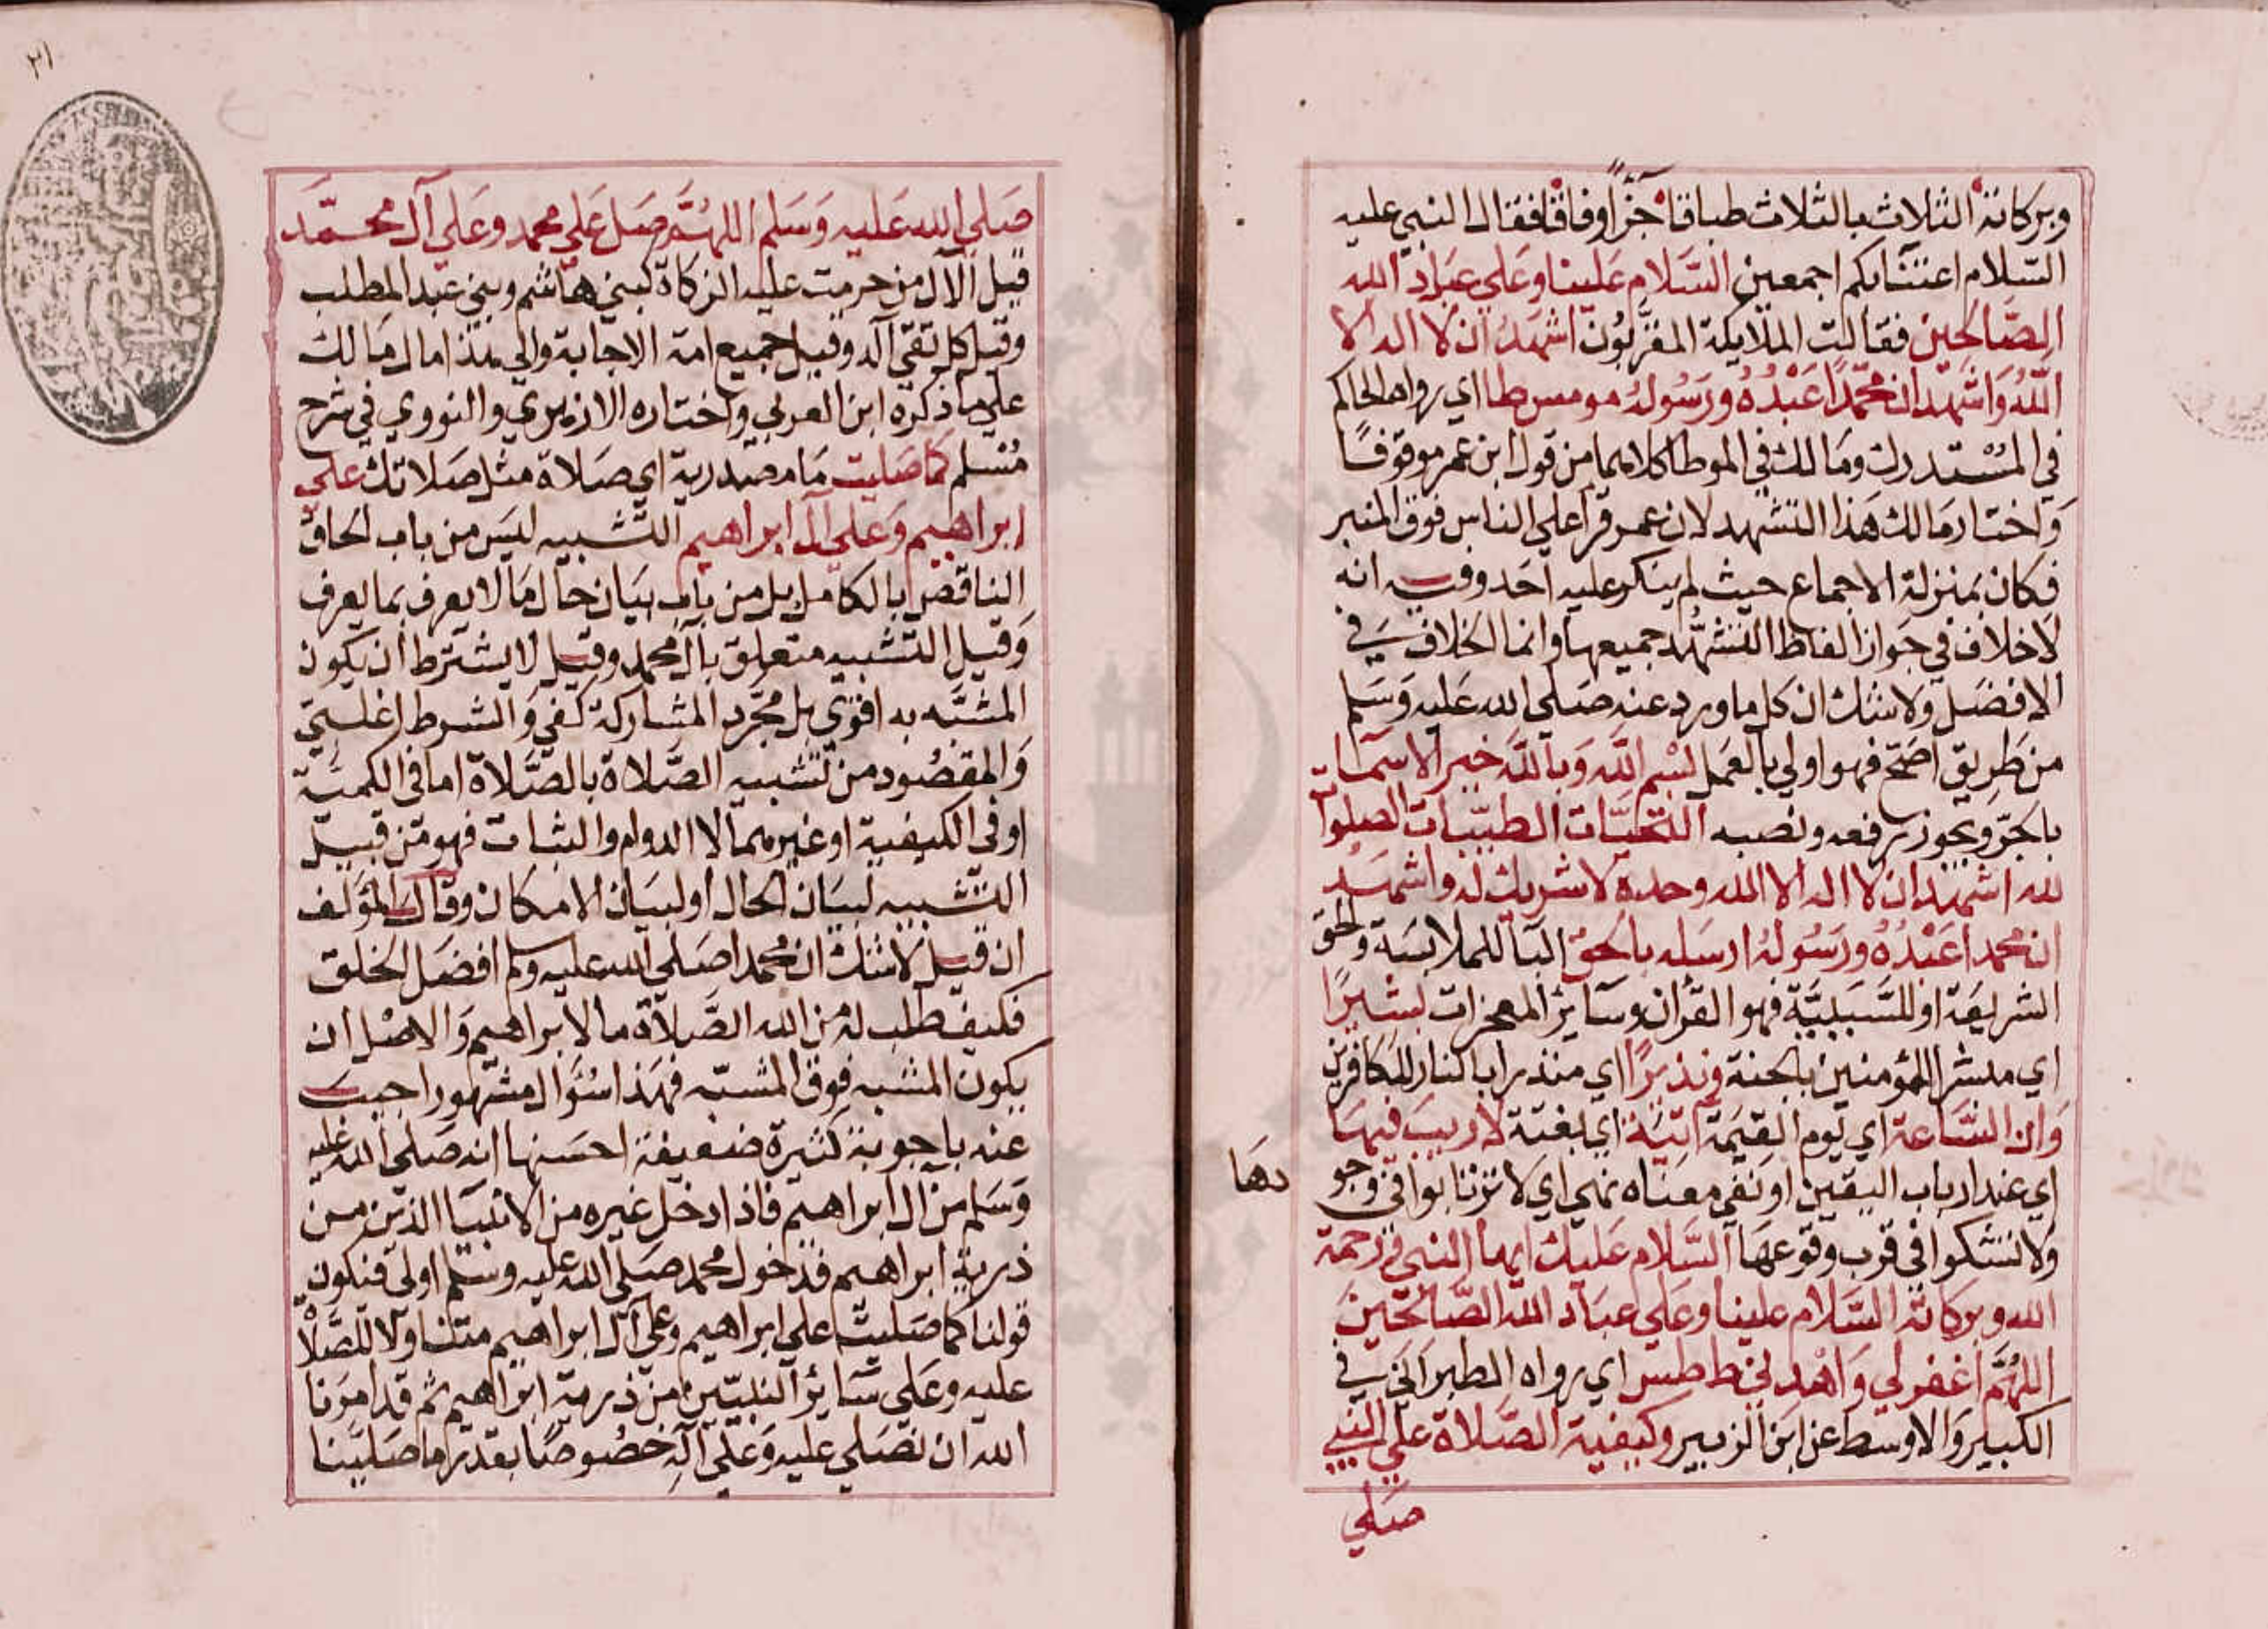 وبركاته الثلاث بالثلاث طباقا جزاً وفاقا فقال النبي عليه
السلام اعتنا بكم اجمعين السلام علينا وعلي عباد الله
الصالحين فقالت الملايكة المقربون اشهد ان لا اله الا
الله واشهد ان محمدا عبده ورسوله مو مس طا اي رواه الحاكم
في المستدرك ومالك في الموطا كلاهما من قول ابن عمر موقوفا
واختار مالك هذا التشهد لان عمر قرا علي الناس فوق المنبر
فكان بمنزلة الاجماع حيث لم ينكر عليه احد وفيه انه
لا خلاف في جواز الفاظ التشهد جميعها وانما الخلاف في
الافضل ولا شك ان كل ما ورد عنه صلي الله عليه وسلم
من طريق اصح فهو اولي بالعمل بسم الله وبالله خير الاسماء
بالجر ويجوز رفعه ونصبه التحيات الطيبات الصلوات
لله اشهد ان لا اله الا الله وحده لا شريك له واشهد
ان محمدا عبده ورسوله ارسله بالحق البا للملابسة والحق
الشريعة او للسببية فهو القران وساير المعجزات بشيرا
اي مبشر اللمؤمنين بالجنة ونذيرا اي منذرا بالنار للكافرين
وان الساعة اي يوم القيمة اتية اي بغتة لا ريب فيها
اي عند ارباب اليقين او نفي معناه نهي اي لا ترتابوا في وجو
دها
ولا تشكوا في قرب وقوعها السلام عليك ايها النبي ورحمة
الله وبركاته السلام علينا وعلي عباد الله الصالحين
اللهم اغفر لي واهدني ط طس اي رواه الطبراني في
الكبير والاوسط عن ابن الزبير وكيفية الصلاة علي النبي
صلي
٣١
صلي الله عليه وسلم اللهم صل علي محمد وعلي آل محمد
قيل الآل من حرمت عليه الزكاة كبني هاشم وبني عبد المطلب
وقيل كل تقي آله وقيل جميع امة الاجابة والي هذا مال مالك
علي ما ذكره ابن العربي واختاره الازهري والنووي في شرح
مسلم كما صليت ما مصدرية اي صلاة مثل صلاتك علي
ابراهيم وعلي آل ابراهيم التشبيه ليس من باب الحاق
الناقص بالكامل بل من باب بيان حال ما لا يعرف بما يعرف
وقيل التشبيه متعلق بآل محمد وقيل لا يشترط ان يكون
المشبه به اقوي بل مجرد المشاركة كفي والشرط اغلبي
والمقصود من تشبيه الصلاة بالصلاة اما في الكمية
او في الكيفية او غيرهما الا الدوام والثبات فهو من قبيل
التشبيه لبيان الحال او لبيان الامكان وقال المؤلف
ان قيل لا شك ان محمدا صلي الله عليه وسلم افضل الخلق
فكيف طلب له من الله الصلاة ما لابراهيم والاصل ان
يكون المشبه فوق المشبه فهذا سؤال مشهور اجيب
عنه باجوبة كثيرة ضعيفة احسنها انه صلي الله عليه
وسلم من ال ابراهيم فاذا دخل غيره من الانبيا الذين من
ذرية ابراهيم فدخول محمد صلي الله عليه وسلم اولي فتكون
قولنا كما صليت علي ابراهيم وعلي آل ابراهيم متناولا للصلاة
عليه وعلي سائر النبيين من ذرية ابراهيم ثم قد امرنا
الله ان نصلي عليه وعلي آله خصوصا بقدر ما صلينا